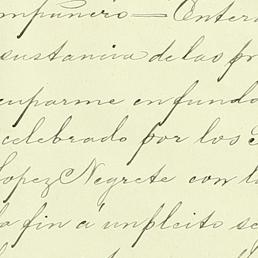 mpañero — Enter
sustancia de las pr
cuparme en funda
celebrado por los S
Lopez Negrete con l
la fin á un pleito se